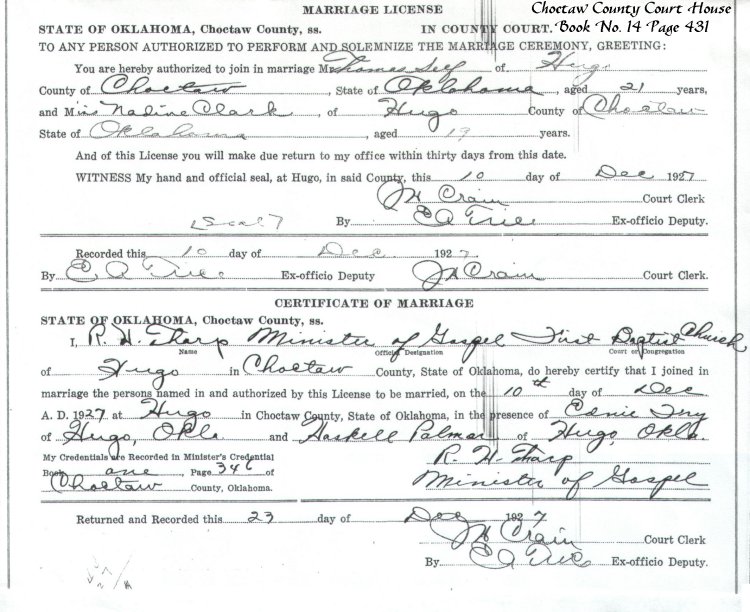 MARRIAGE LICENSE
Choctaw County Court House
Book No. 14 Page 431
STATE OF OKLAHOMA, Choctaw County, ss. IN COUNTY COURT.
TO ANY PERSON AUTHORIZED TO PERFORM AND SOLEMNIZE THE MARRIAGE CEREMONY, GREETING:
You are hereby authorized to join in marriage Mr. Thomas Self of Hugo
County of Choctaw, State of Oklahoma, aged 21 years,
and Miss Nadine Clark, of Hugo County of Choctaw
State of Oklahoma, aged 19 years.
And of this License you will make due return to my office within thirty days from this date.
WITNESS My hand and official seal, at Hugo, in said County, this 10 day of Dec 1927
Crain Court Clerk
(Seal) By Ex-officio Deputy.
Recorded this 10 day of Dec 1927
By Ex-officio Deputy Crain Court Clerk.
CERTIFICATE OF MARRIAGE
STATE OF OKLAHOMA, Choctaw County, ss.
I, R. H. Tharp Minister of Gospel First Baptist Church
Name Official Designation Court or Congregation
of Hugo in Choctaw County, State of Oklahoma, do hereby certify that I joined in
marriage the persons named in and authorized by this License to be married, on the 10th day of Dec.
A. D. 1927 at Hugo in Choctaw County, State of Oklahoma, in the presence of
of Hugo, Okla and Haskell Palmer of Hugo, Okla.
My Credentials are Recorded in Minister's Credential
Book one, Page 346 of
Choctaw County, Oklahoma.
R. H. Tharp
Minister of Gospel
Returned and Recorded this 23 day of Dec 1927
Crain Court Clerk
By Ex-officio Deputy.